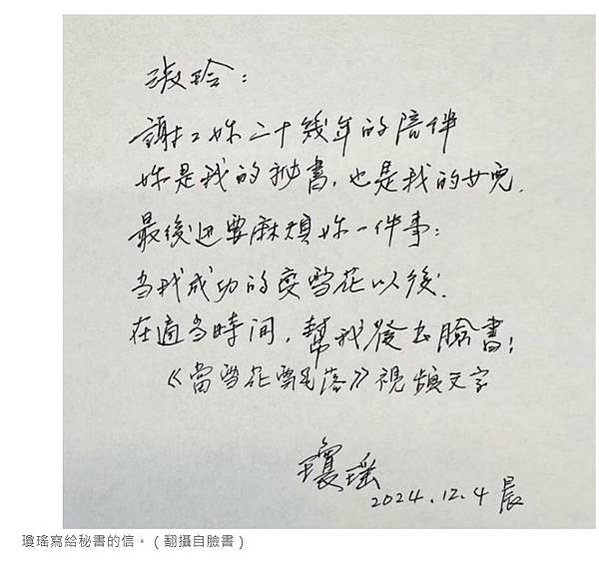 淑玲：
謝々妳二十幾年的陪伴
妳是我的秘書，也是我的女兒。
最後还要麻煩妳一件事：
当我成功的变雪花以後，
在適当時间，幫我發去臉書：
《當雪花飄落》視頻文字
瓊瑤
2024.12.4 晨
瓊瑤寫給秘書的信。（翻攝自臉書）